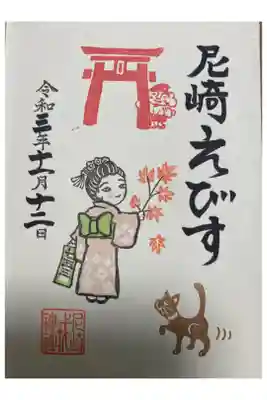 尼崎えびす
令和三年十一月十二日